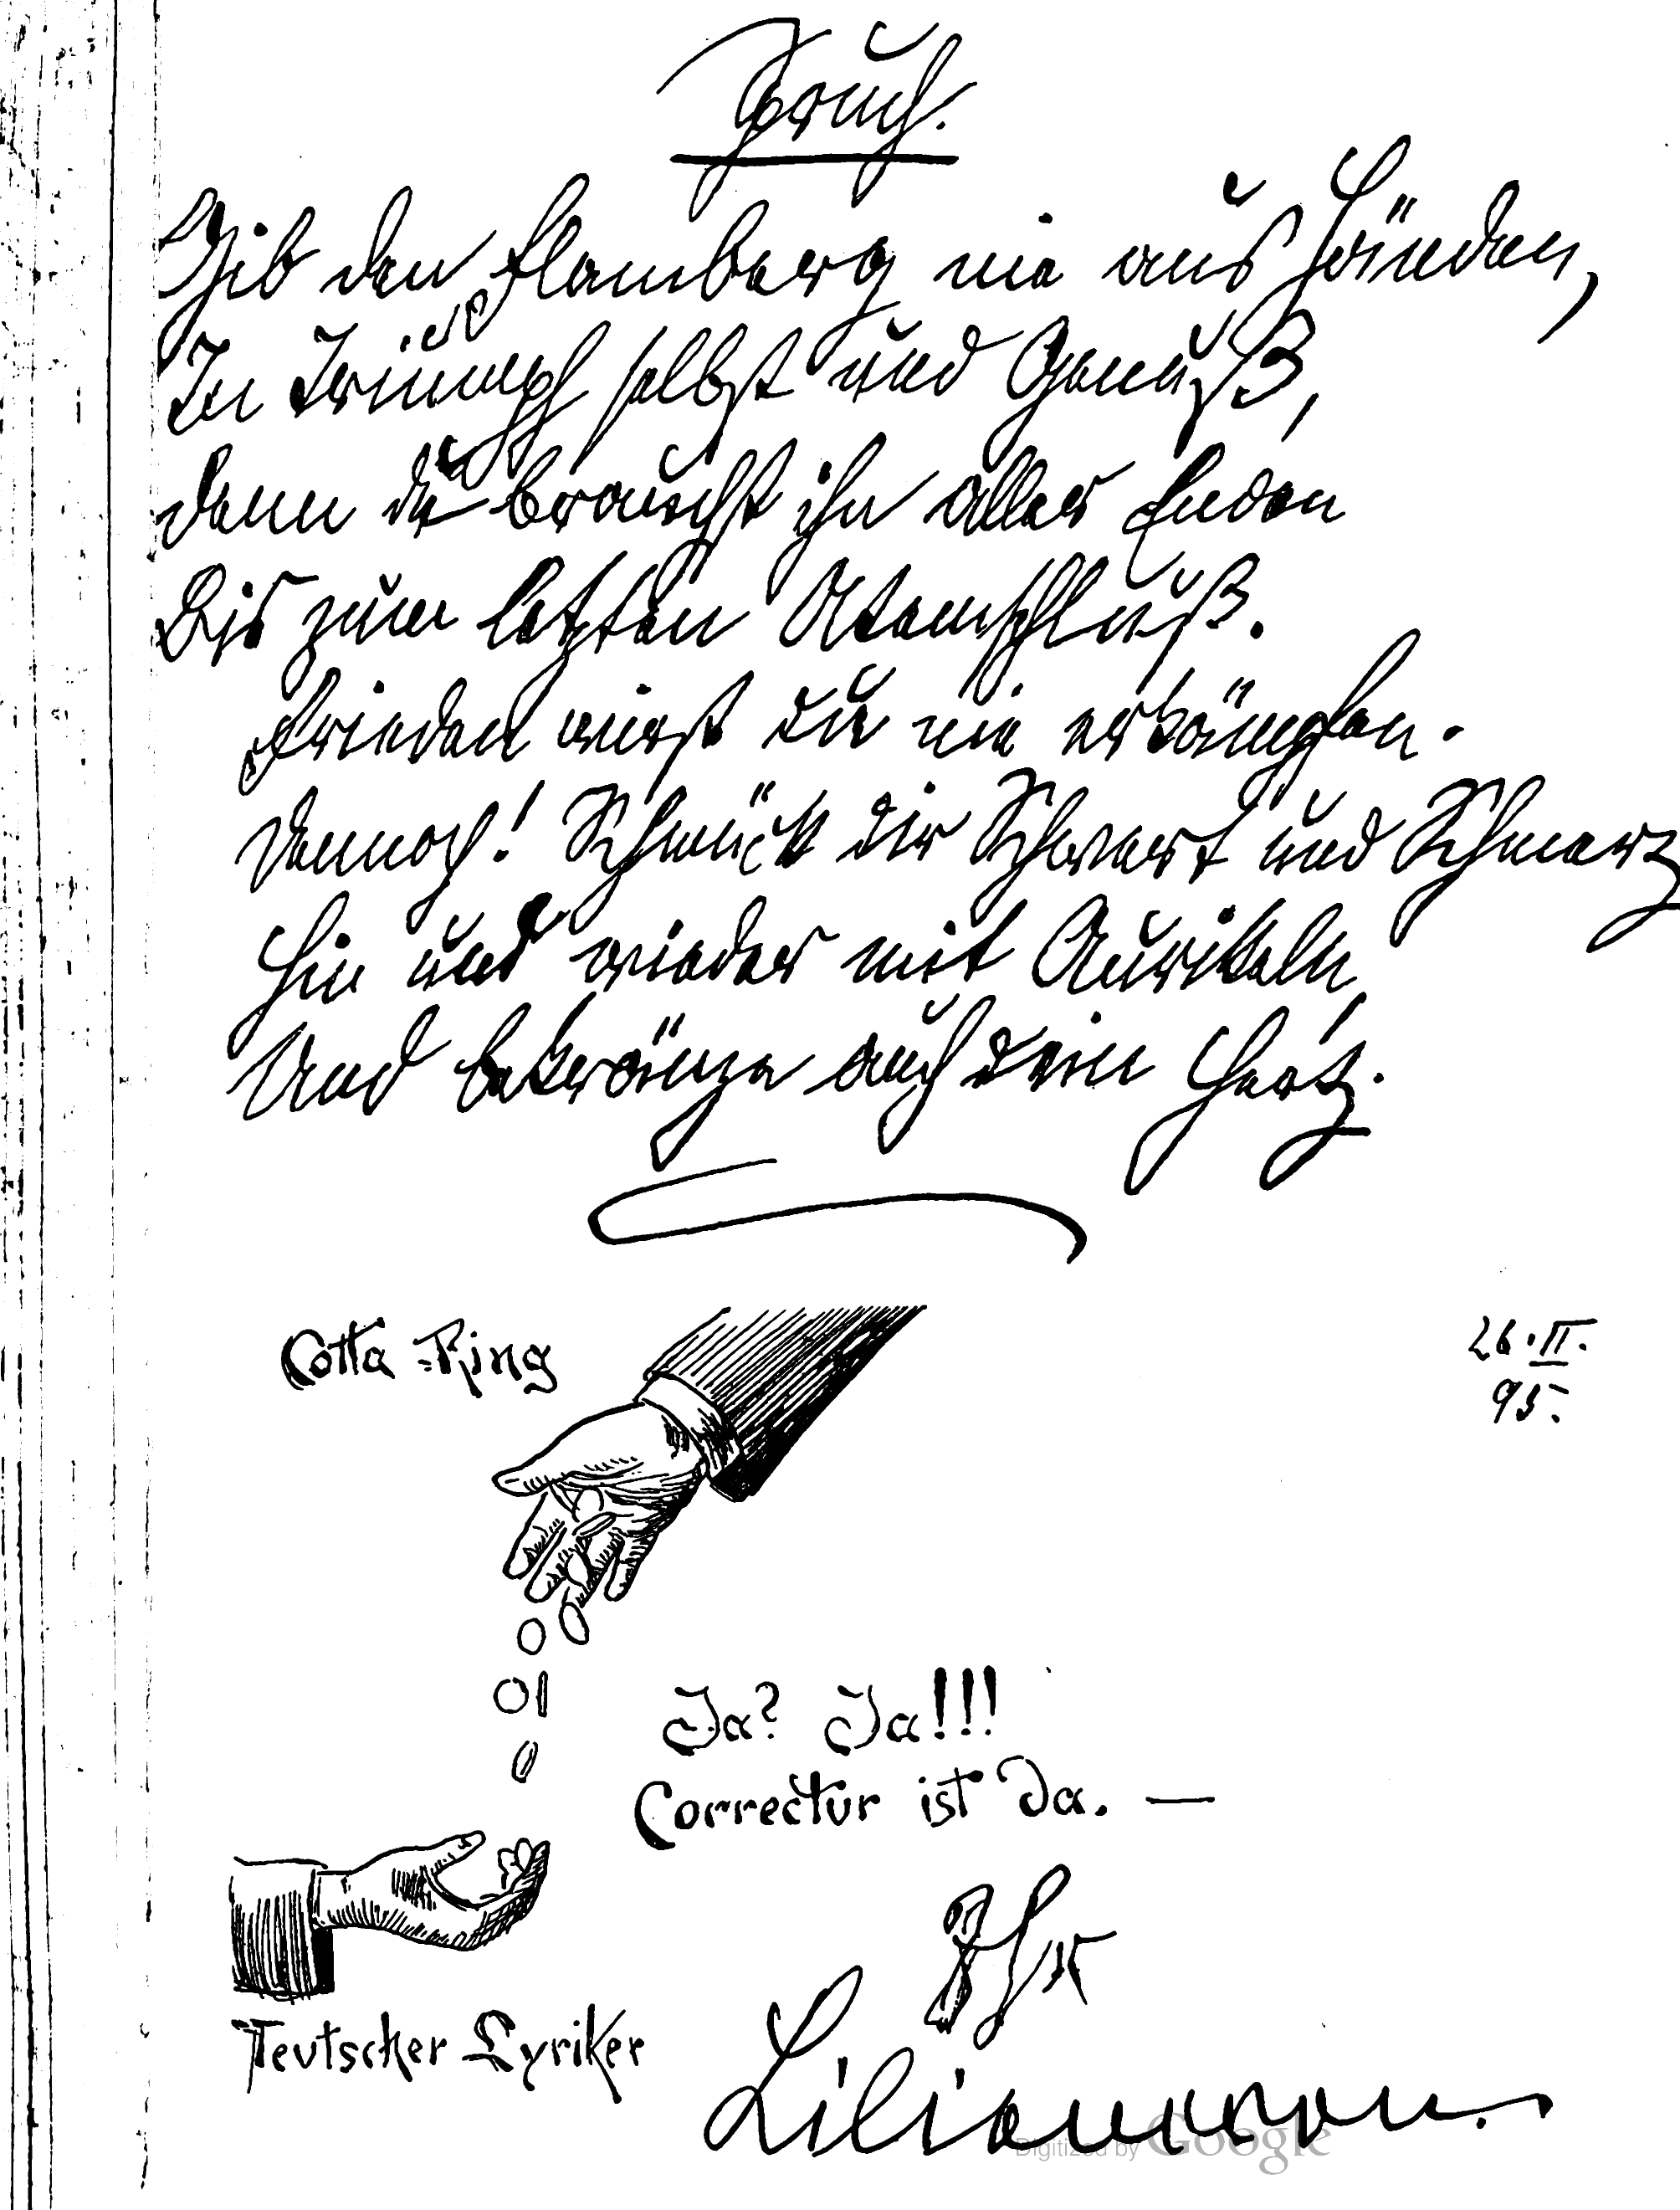 Spruch.
Gib den Flamberg nie aus Händen,
In Triumph selbst und Genuß,
Denn du brauchst ihn aller Enden
Bis zum letzten Atemschluß.
Frieden wirst du nie erkämpfen.
Dennoch! Schmück dir Schwert und Schmerz
Hin und wieder mit Aurikeln
Und bekränze auch dein Herz.
Cotta-Ring
26.II.
95.
Ja? Ja!!!
Correctur ist Da. —
Ihr
Teutscher Lyriker
Liliencron.
Digitized by Google